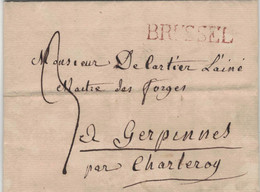 BRUSSEL
Monsieur De Cartier L'ainé
Maitre des forges
à Gerpinnes
par Charleroy